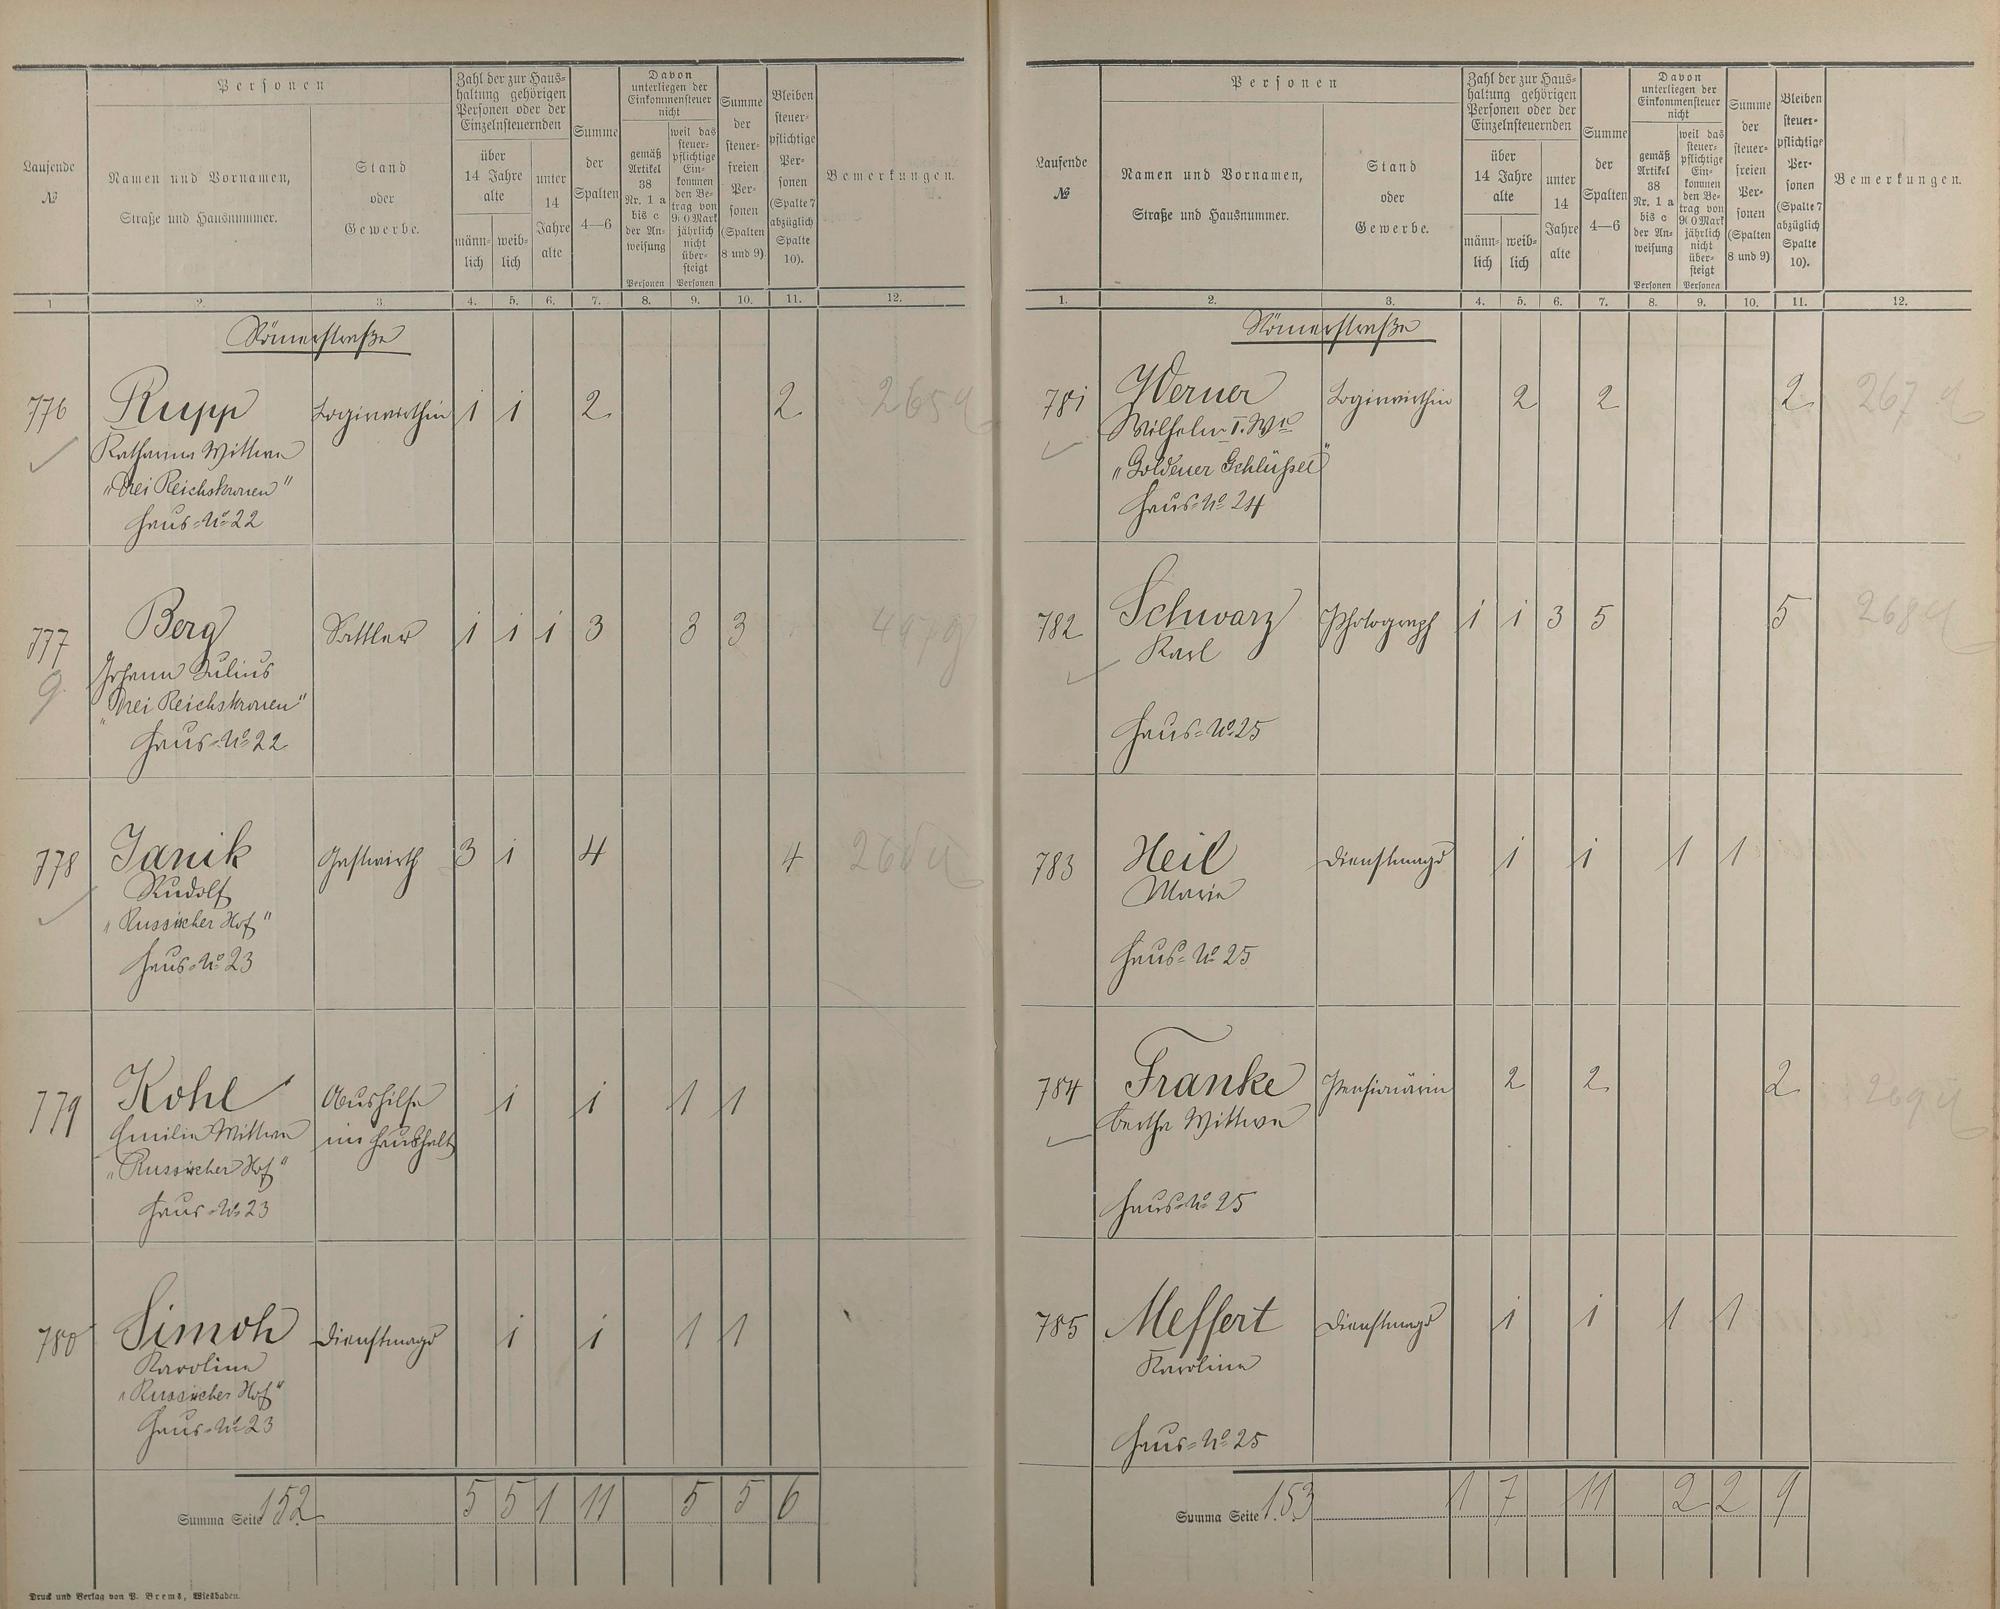 Laufende
№
Personen
Namen und Vornamen,
Straße und Hausnummer.
Stand
oder
Gewerbe.
Zahl der zur Haus-
haltung gehörigen
Personen oder der
Einzelnsteuernden
über
14 Jahre
alte
männ-
lich
weib-
lich
unter
14
Jahre
alte
Summe
der
Spalten
4—6
Davon
unterliegen der
Einkommensteuer
nicht
gemäß
Artikel
38
Nr. 1 a
bis c
der An-
weisung
Personen
weil das
steuer-
pflichtige
Ein-
kommen
den Be-
trag von
900 Mark
jährlich
nicht
über-
steigt
Personen
Summe
der
steuer-
freien
Per-
sonen
(Spalten
8 und 9)
Bleiben
steuer-
pflichtige
Per-
sonen
(Spalte 7
abzüglich
Spalte
10).
Bemerkungen.
1 2. 3. 4. 5. 6. 7. 8. 9. 10. 11. 12.
Römerstraße
776 Rupp Logirwirthin 1 1 2 2
Katharina Wittwe
"Drei Reichskronen"
Haus-№ 22
777 Berg Sattler 1 1 1 3 3 3
Johann Julius
"Drei Reichskronen"
Haus-№ 22
778 Janik Gastwirth 3 1 4 4
Rudolf
"Russischer Hof"
Haus-№ 23
779 Kohl Aushilfe 1 1 1 1
Emilie Wittwe im Haushalt
"Russischer Hof"
Haus-№ 23
780 Simoh Dienstmagd 1 1 1 1
Karoline
"Russischer Hof"
Haus-№ 23
Summa Seite 152 5 5 1 11 5 5 6
Druck und Verlag von P. Brems, Wiesbaden.
Laufende
№
Personen
Namen und Vornamen,
Straße und Hausnummer.
Stand
oder
Gewerbe.
Zahl der zur Haus-
haltung gehörigen
Personen oder der
Einzelnsteuernden
über
14 Jahre
alte
männ-
lich
weib-
lich
unter
14
Jahre
alte
Summe
der
Spalten
4—6
Davon
unterliegen der
Einkommensteuer
nicht
gemäß
Artikel
38
Nr. 1 a
bis c
der An-
weisung
Personen
weil das
steuer-
pflichtige
Ein-
kommen
den Be-
trag von
900 Mark
jährlich
nicht
über-
steigt
Personen
Summe
der
steuer-
freien
Per-
sonen
(Spalten
8 und 9)
Bleiben
steuer-
pflichtige
Per-
sonen
(Spalte 7
abzüglich
Spalte
10).
Bemerkungen.
1. 2. 3. 4. 5. 6. 7. 8. 9. 10. 11. 12.
Römerstraße
781 Werner Logirwirthin 2 2 2 267
Wilhelm I. We
"Goldener Schlüssel"
Haus-№ 24
782 Schwarz Photograph 1 1 3 5 5 268
Karl
Haus-№ 25
783 Heil Dienstmagd 1 1 1 1
Marie
Haus-№ 25
784 Franke Pensionärin 2 2 2 269
Bertha Wittwe
Haus-№ 25
785 Meffert Dienstmagd 1 1 1 1
Karoline
Haus-№ 25
Summa Seite 153 1 7 11 2 2 9